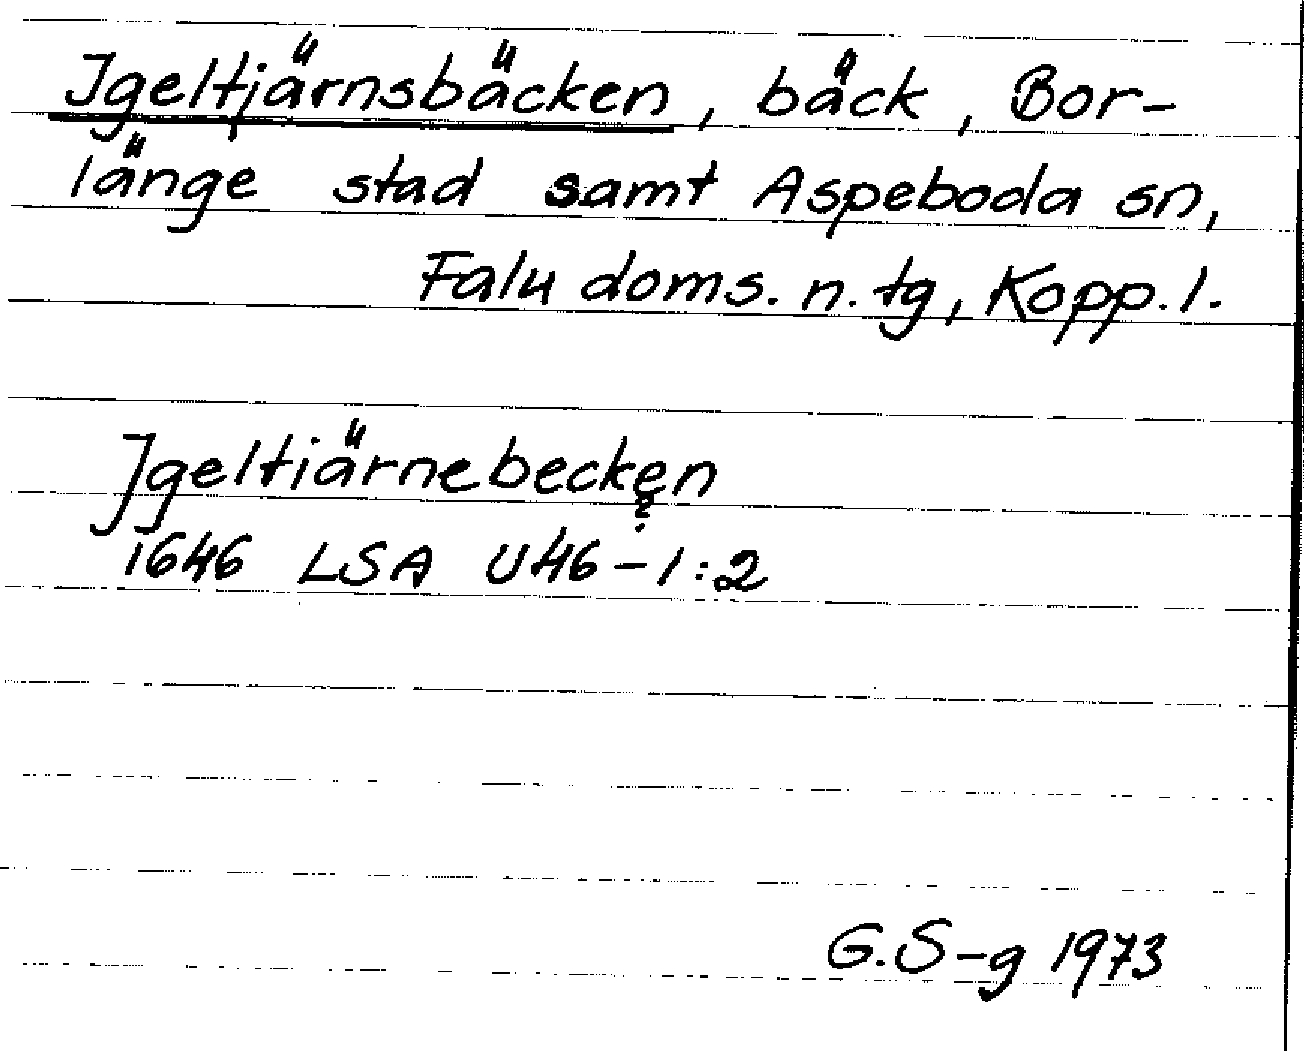 Igeltjärnsbäcken, bäck, Bor-
länge stad samt Aspeboda sn,
Falu doms. n. tg, Kopp. l.
Jgeltiärnebecken
?
1646 LSA U46-1:2
G.S-g 1973